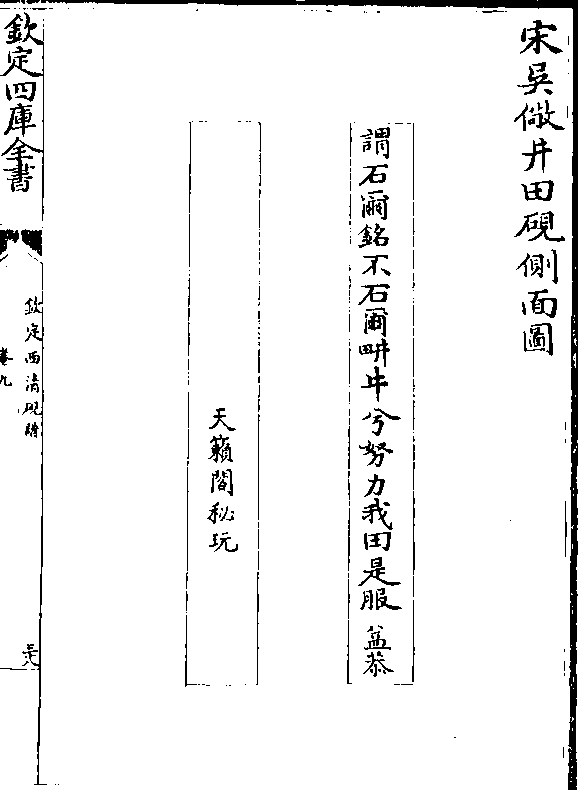 宋吳儆井田硯側面圖
謂石爾銘不石爾畊牛兮努力我田是服 益恭
天籟閣秘玩
欽定四庫全書
欽定西清硯譜
卷九